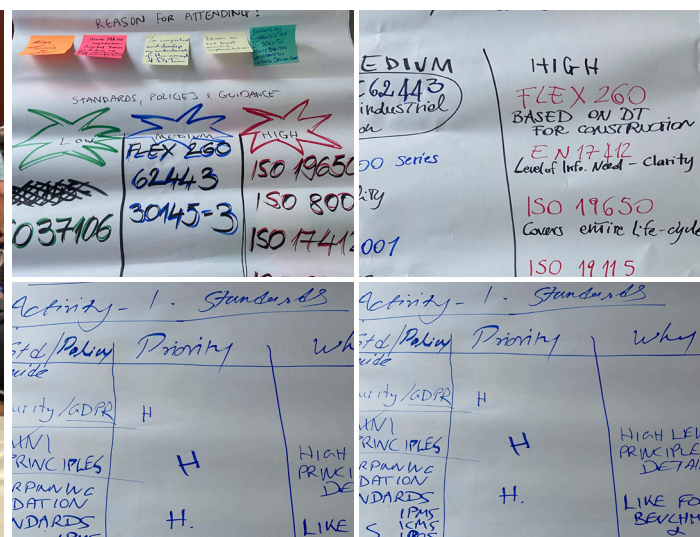 REASON FOR ATTENDING!
STANDARDS, POLICIES & GUIDANCE
LOW
037106
MEDIUM
FLEX 260
62443
30145-3
HIGH
ISO 19650
ISO 800
ISO 17412
EDIUM
62443
industrial
00 series
001
HIGH
FLEX 260
BASED ON DT
FOR CONSTRUCTION
EN 17412
Level of Info. Need - Clarity
ISO 19650
Covers entire life-cycle
ISO 19115
Activity - 1. Standards
Std/Policy
Priority
Wh
uide
urity/GDPR
H
PRINCIPLES
H
HIGH
PRINCI
DE
DATION
NDARDS
H.
LIKE
Activity - 1. Standards
Std/Policy
Priority
Why
uide
urity/GDPR
H
PRINCIPLES
H
HIGH LEV
PRINCIPLE
DETA
DATION
NDARDS
H.
IPMS
ICMS
LIKE FO
BENCHM
&